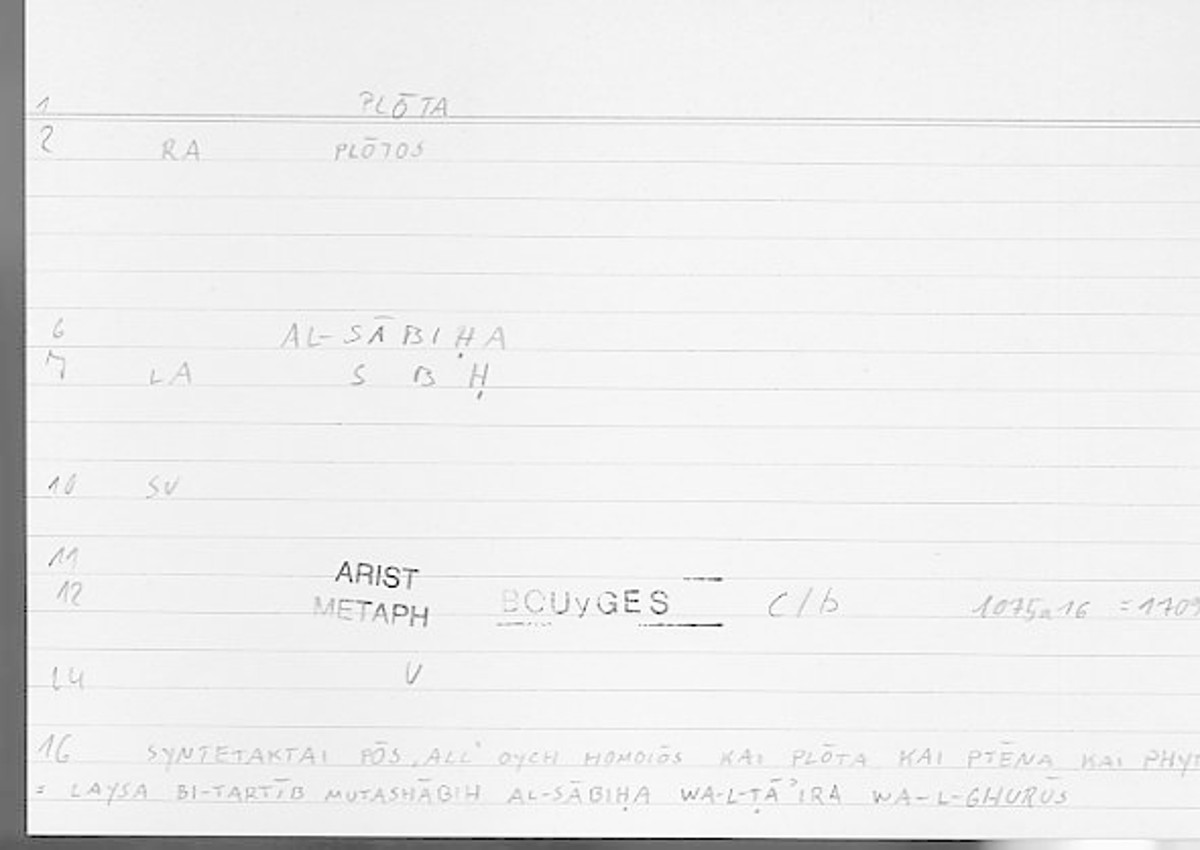 1 PLŌTA
2 RA PLŌTOS
6 AL-SĀBIḤA
7 LA S B Ḥ
10 SV
11
12 ARIST METAPH BOUyGES C/b 1075a16 =1709
14 V
16 SYNTETAKTAI PŌS, ALL' OYCH HOMOIŌS KAI PLŌTA KAI PTĒNA KAI PHYT
= LAYSA BI-TARTĪB MUTASHĀBIH AL-SĀBIḤA WA-L-ṬĀʾIRA WA-L-GHURŪS